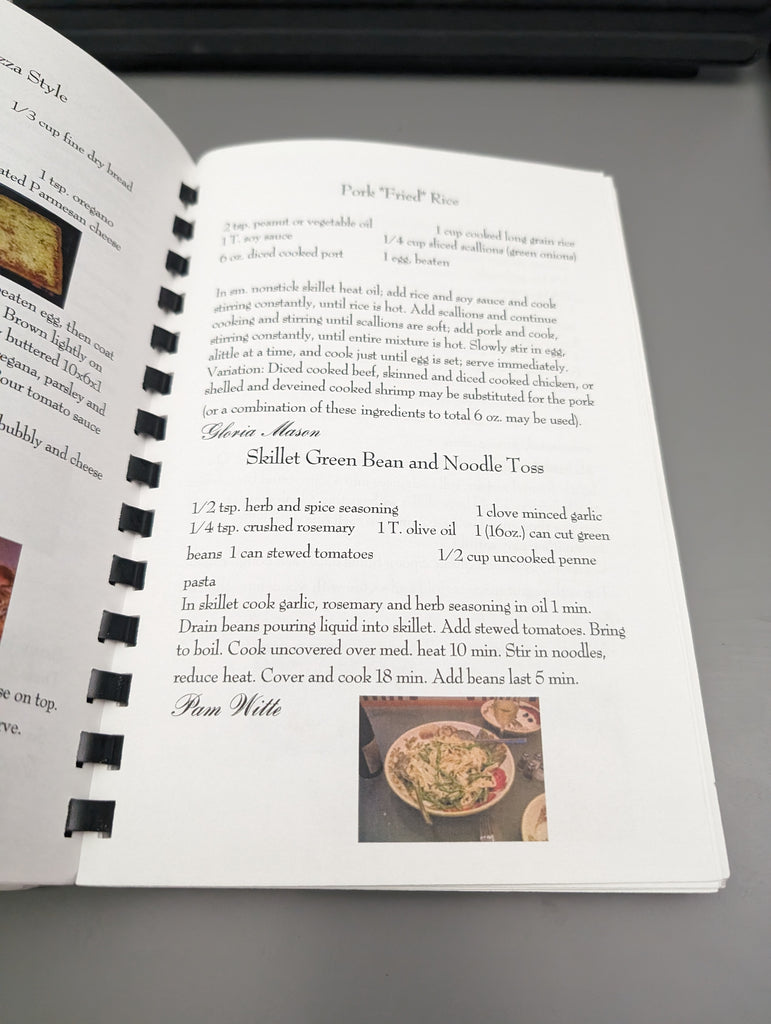 zza Style
1/3 cup fine dry bread
1 tsp. oregano
ated Parmesan cheese
eaten egg, then coat
Brown lightly on
buttered 10x6x1
egana, parsley and
our tomato sauce
bubbly and cheese
se on top.
rve.
Pork "Fried" Rice
2 tsp. peanut or vegetable oil 1 cup cooked long grain rice
1 T. soy sauce 1/4 cup sliced scallions (green onions)
6 oz. diced cooked port 1 egg, beaten
In sm. nonstick skillet heat oil; add rice and soy sauce and cook
stirring constantly, until rice is hot. Add scallions and continue
cooking and stirring until scallions are soft; add pork and cook,
stirring constantly, until entire mixture is hot. Slowly stir in egg,
alittle at a time, and cook just until egg is set; serve immediately.
Variation: Diced cooked beef, skinned and diced cooked chicken, or
shelled and deveined cooked shrimp may be substituted for the pork
(or a combination of these ingredients to total 6 oz. may be used).
Gloria Mason
Skillet Green Bean and Noodle Toss
1/2 tsp. herb and spice seasoning 1 clove minced garlic
1/4 tsp. crushed rosemary 1 T. olive oil 1 (16oz.) can cut green
beans 1 can stewed tomatoes 1/2 cup uncooked penne
pasta
In skillet cook garlic, rosemary and herb seasoning in oil 1 min.
Drain beans pouring liquid into skillet. Add stewed tomatoes. Bring
to boil. Cook uncovered over med. heat 10 min. Stir in noodles,
reduce heat. Cover and cook 18 min. Add beans last 5 min.
Pam Witte